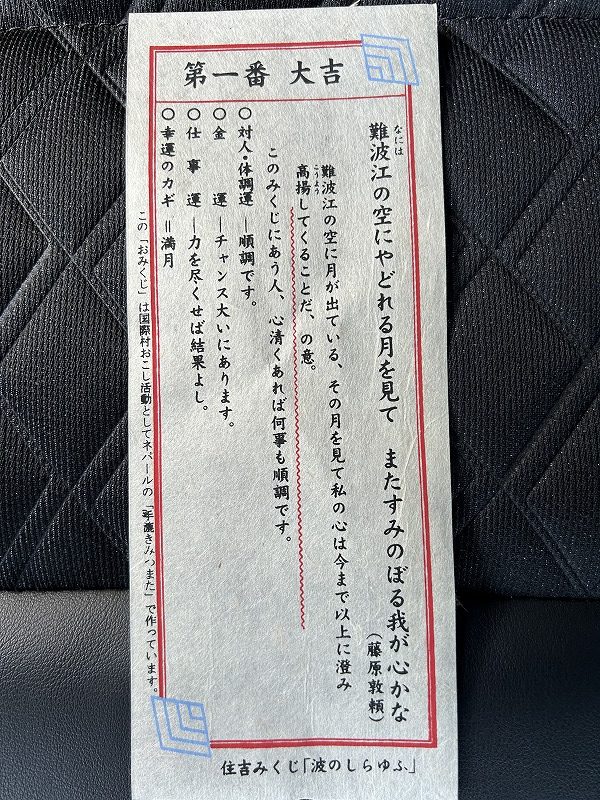 第一番 大吉
難波江の空にやどれる月を見て またすみのぼる我が心かな
なには
(藤原敦頼)
難波江の空に月が出ている、その月を見て私の心は今まで以上に澄み
高揚してくることだ、の意。
こうよう
このみくじにあう人、心清くあれば何事も順調です。
○対人・体調運―順調です。
○金 運―チャンス大いにあります。
○仕事運―力を尽くせば結果よし。
○幸運のカギ=満月
この「おみくじ」は国際村おこし活動としてネパールの「手漉きみつまた」で作っています。
住吉みくじ「波のしらゆふ」